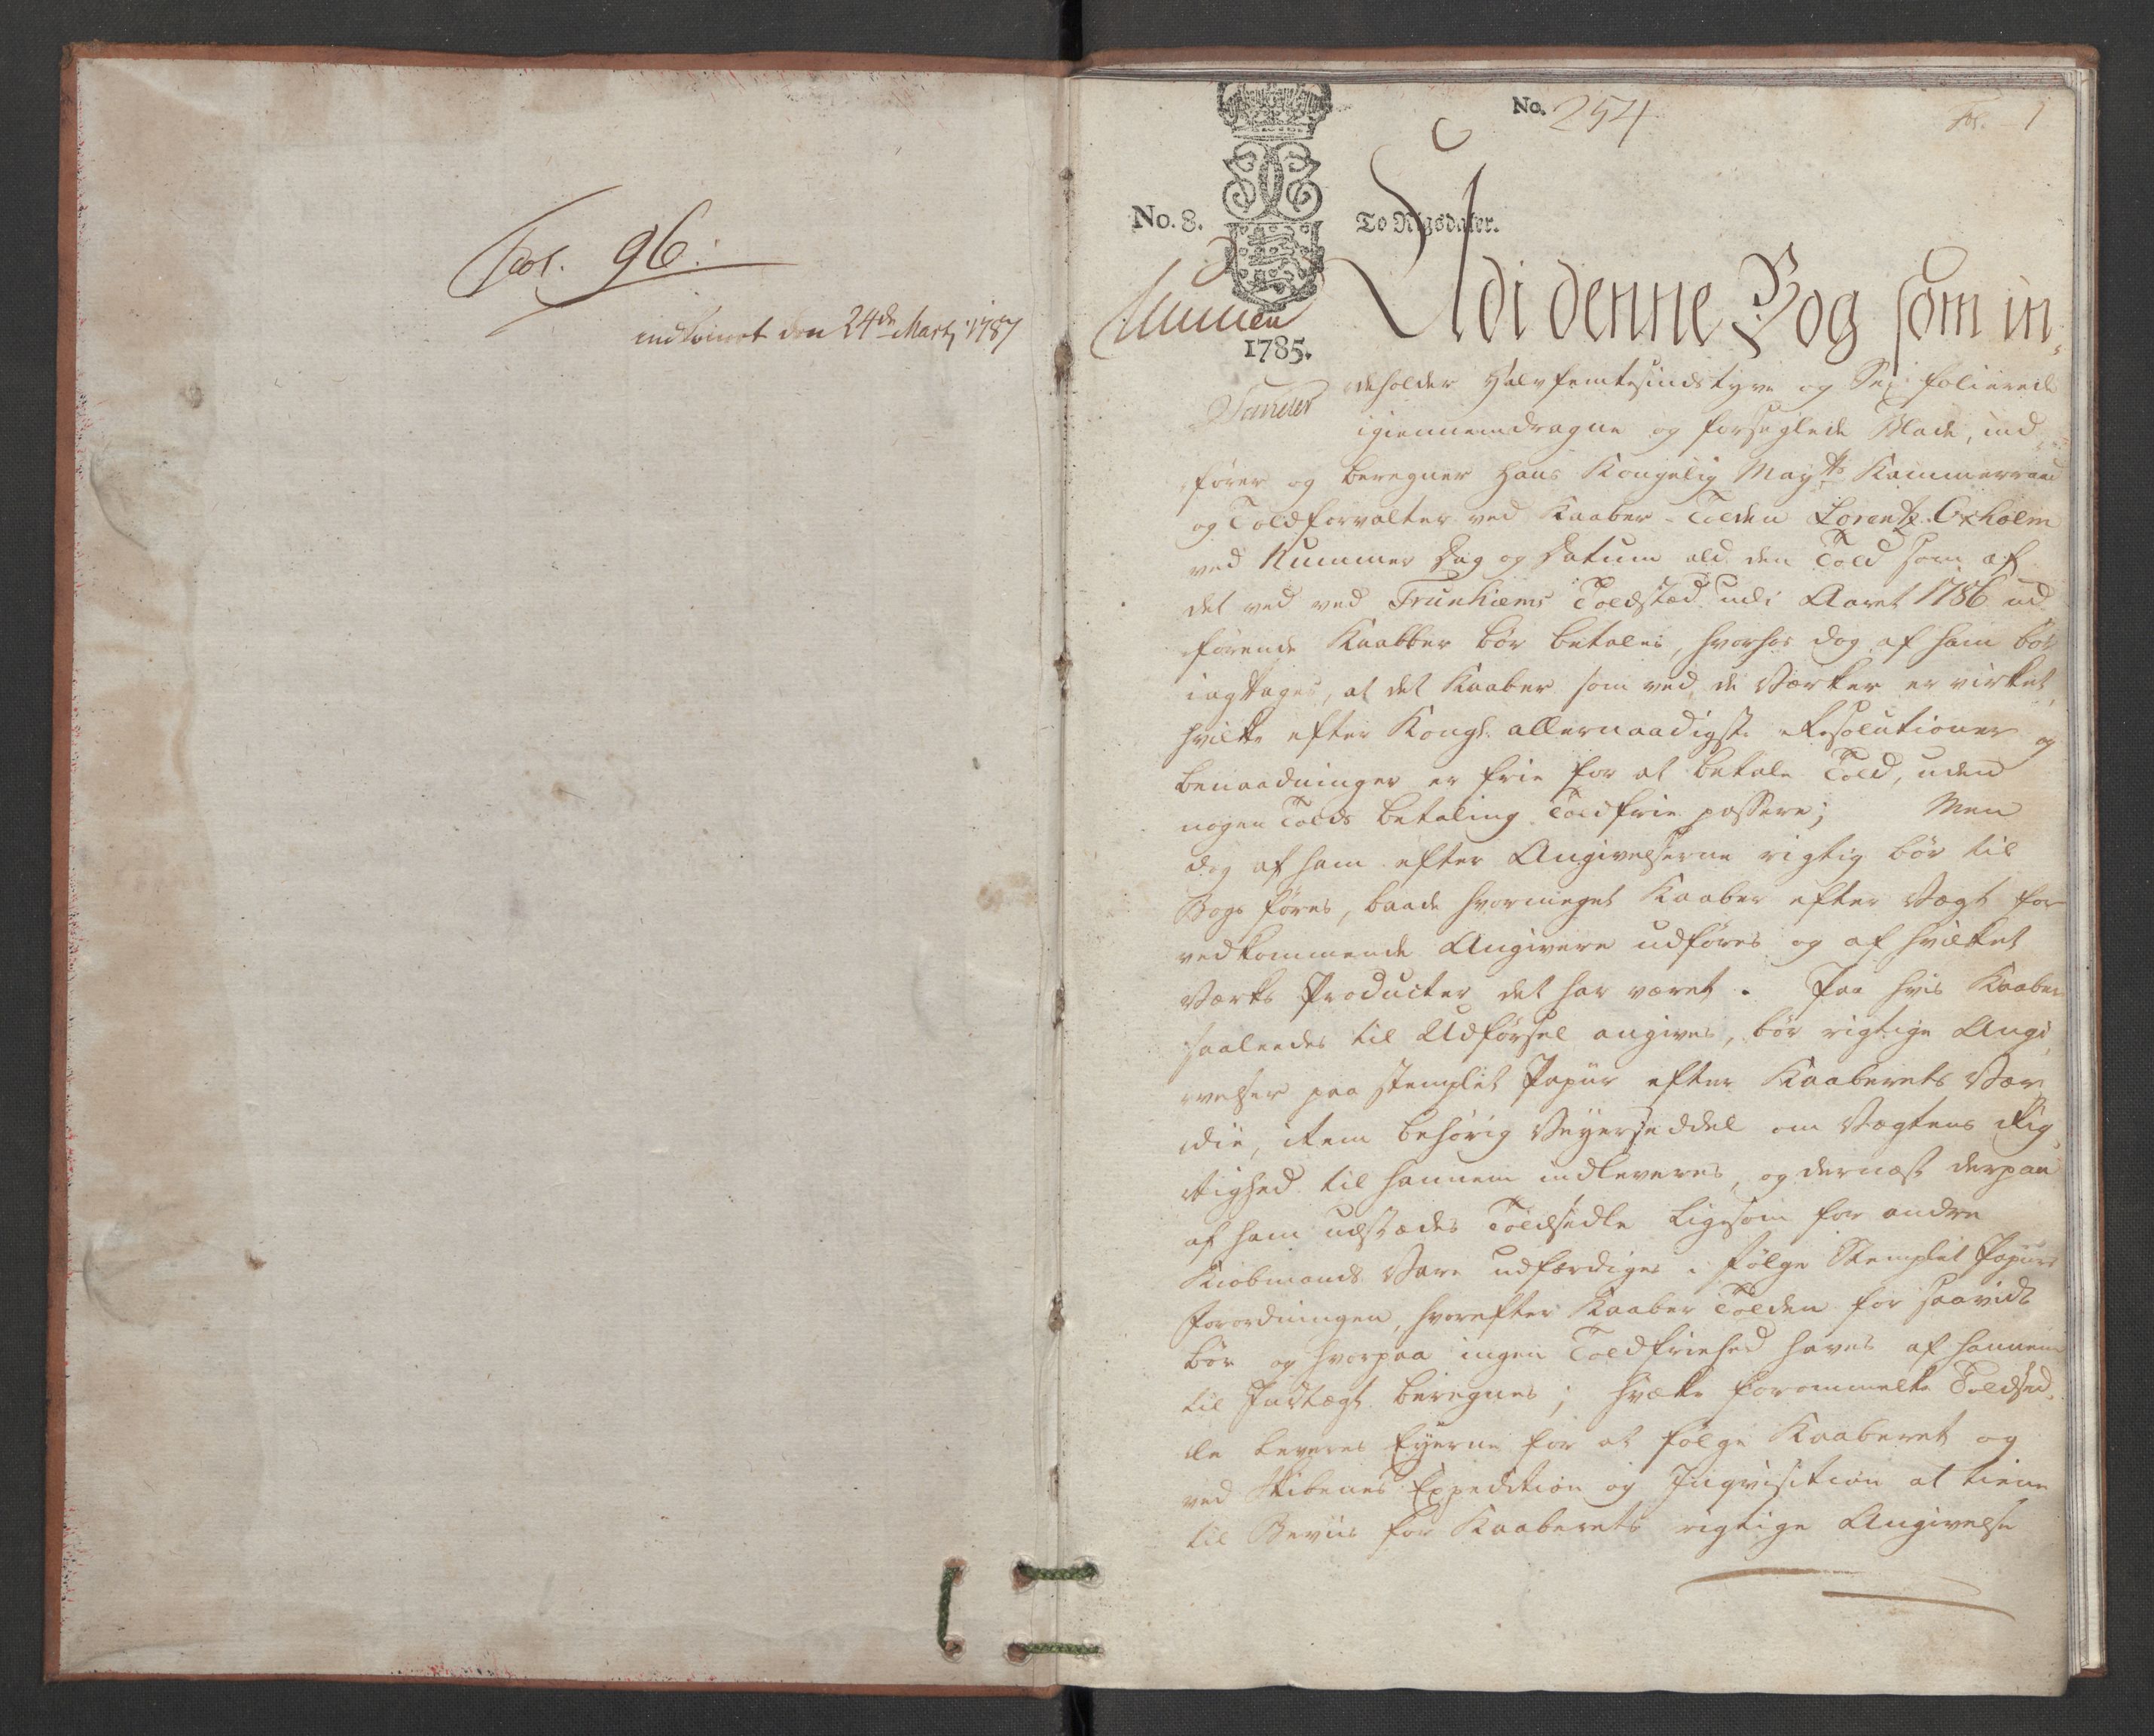 Fol. 96:
indleveret den 24de Martj 1787
No. 254
Fol. 1
No. 8.
To Rigsdaler.
1785.
Udi denne Bog som in,
deholder Halvfemtesindstyve og Sex folierede
igiennemdragne og forseglede Blade, ind,
fører og beregner Hans Kongelig Mayts Kammerraad
og Toldforvalter ved Kaaber-Tolden Lorentz Oxholm
ved Nummer Dag og Datum ald den Told som af
det ved ved Trunhiems Toldsted udi Aaret 1786 ud,
førende Kaabber bør betales, hvorhos dog af ham bør
iagttages, at det Kaaber som ved de Værker er virket,
hvilke efter Kongl. allernaadigste Resolutioner og
benaadninger er frie for at betale Told, uden
nogen Tolds betaling Toldfrie passere; Men
dog af ham efter Angivelserne rigtig bør til
Bogs føres, baade hvormeget Kaaber efter Vægt for
vedkommende Angivere udføres og af hvilket
Værks Producter det har været. Paa hvis Kaaber
saaleedes til Udførsel angives, bør rigtige Angi,
velser paa stemplet Papiir efter Kaaberets Vær,
die, item behørig Veyerseddel om Vægtens Rig,
tighed til hannem indleveres, og dernæst derpaa
af ham udstædes Toldsedle ligesom for andre
Kiøbmands Vare udfærdiges i følge Stemplet Papiirs
Forordningen, hvorefter Kaaber Tolden for saavidt
bør og hvorpaa ingen Toldfriehed haves af hannem
til Indtægt beregnes; hvilke forommelte Toldsed,
le leveres Eyerne for at følge Kaaberet og
ved Skibenes Expedition og Inqvisition at tiene
til Beviis for Kaaberets rigtige Angivelse